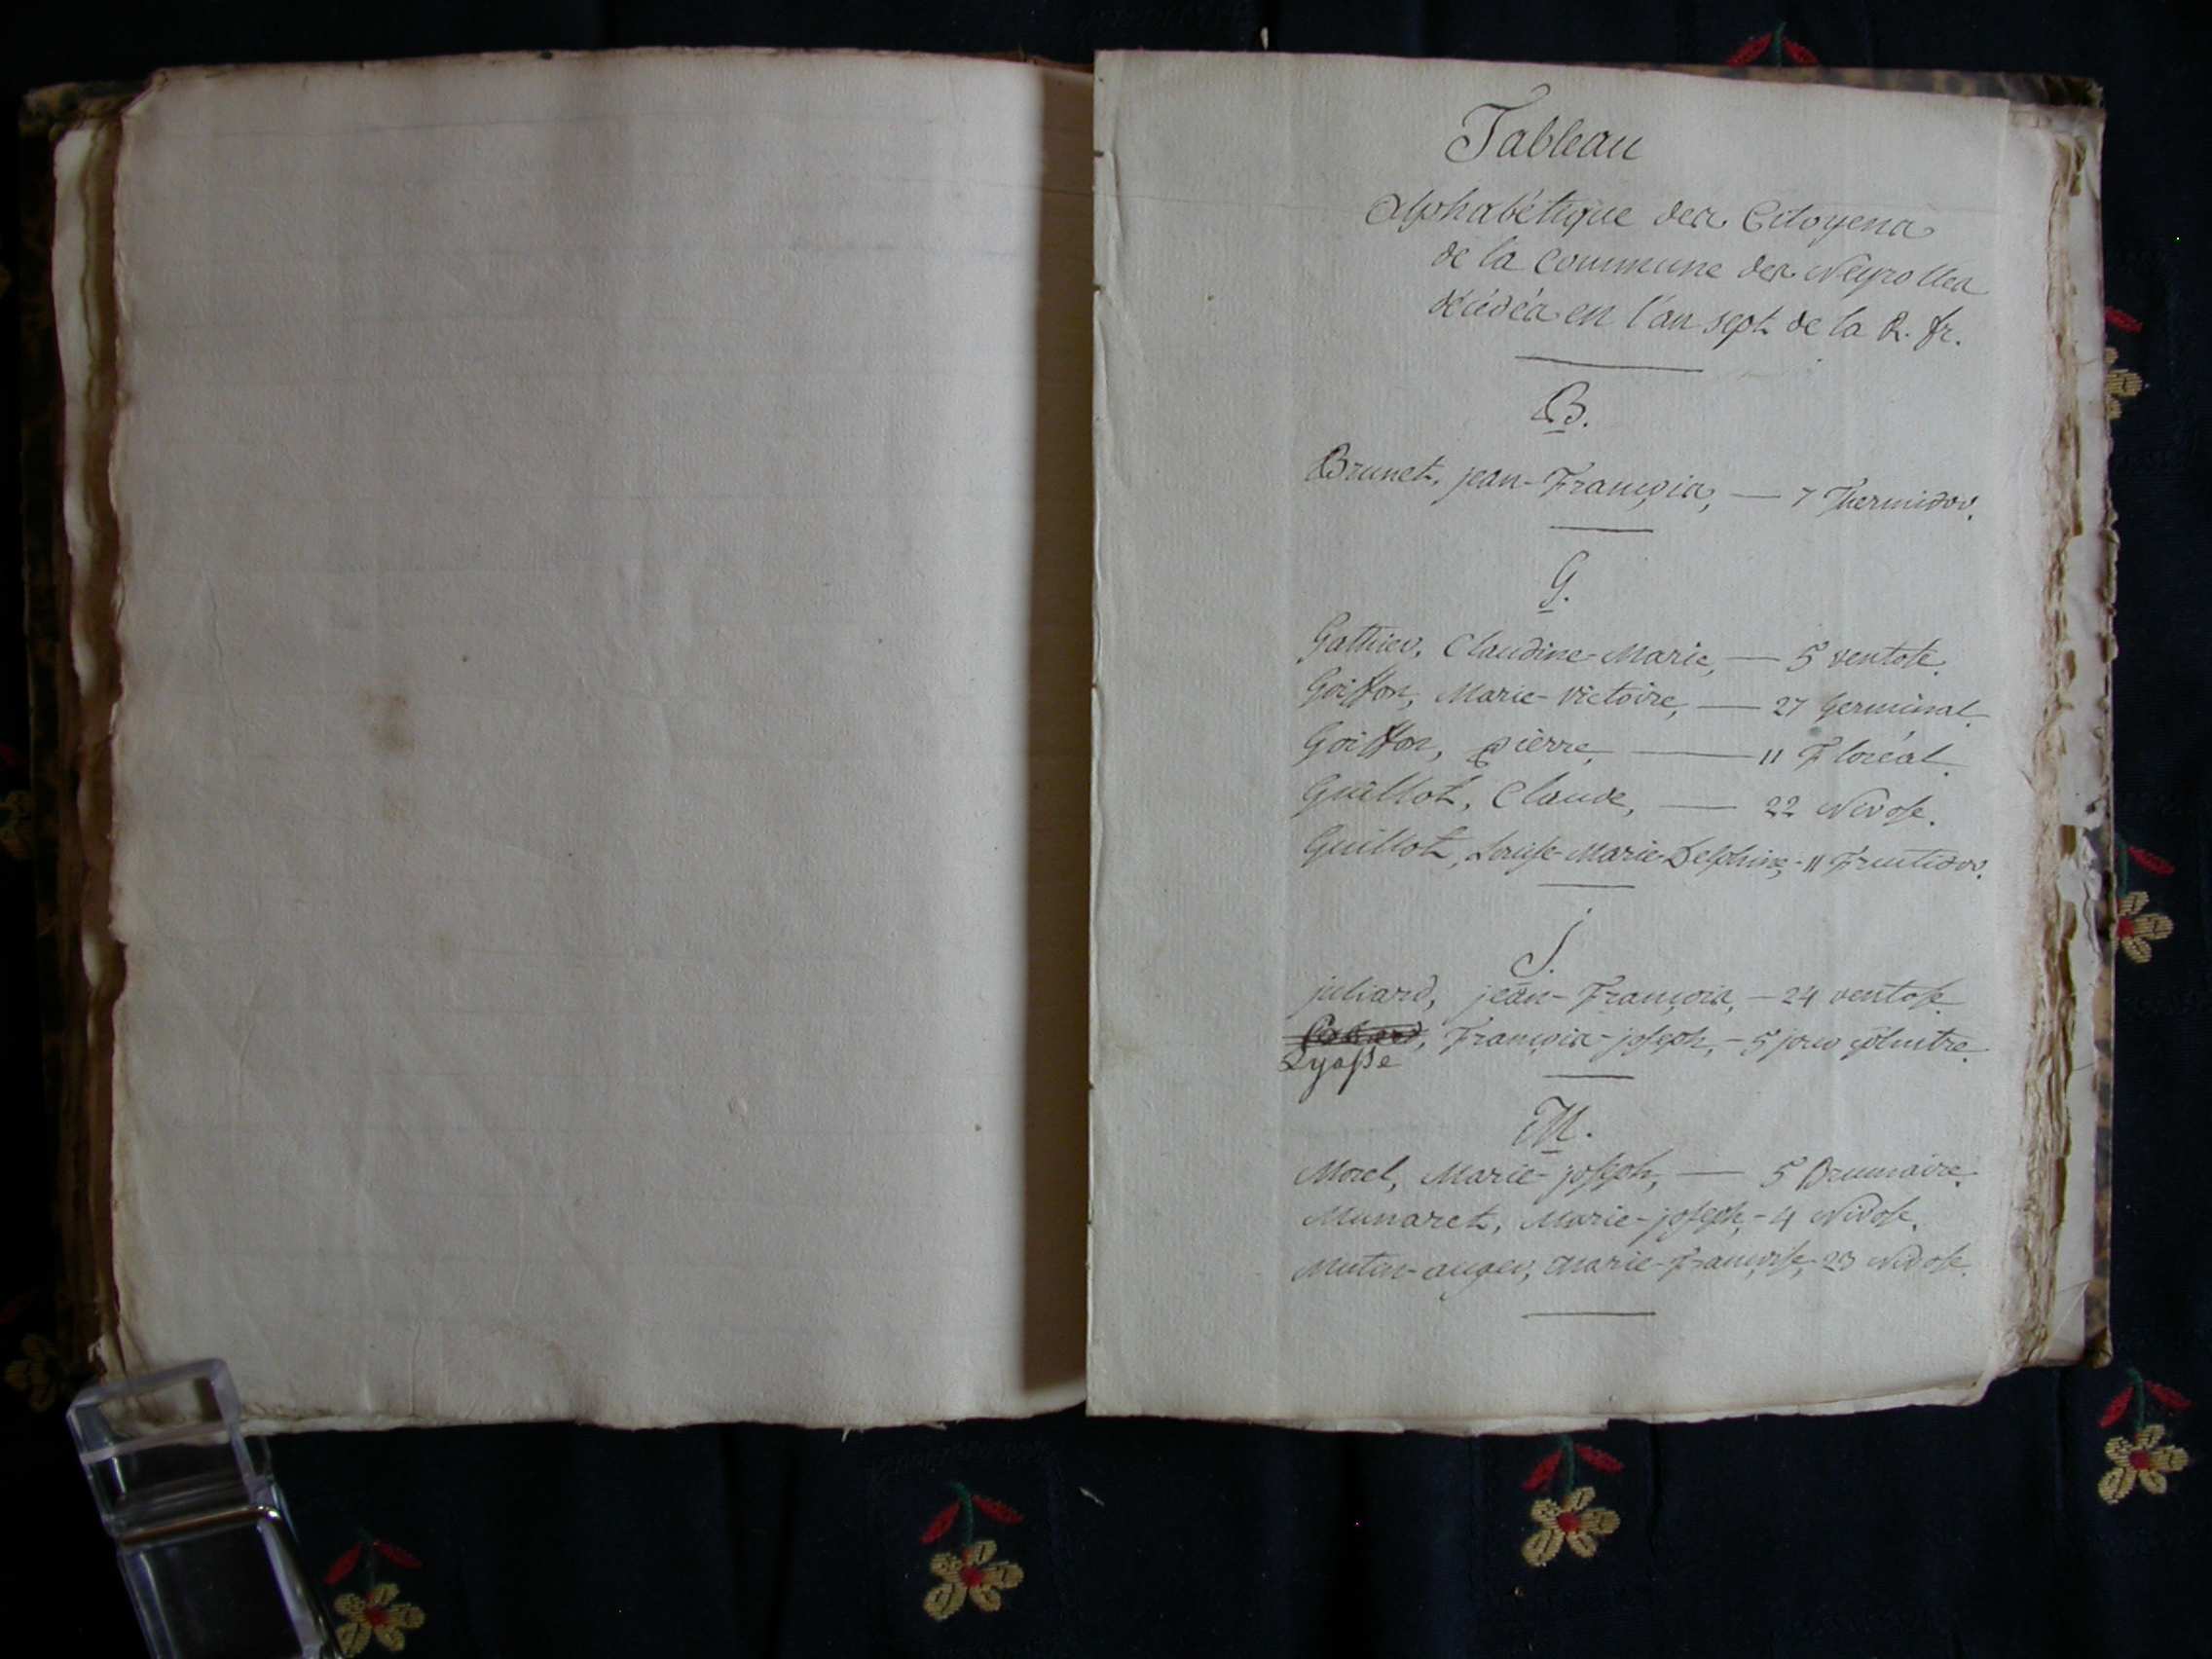 Tableau
alphabétique des Citoyens
de la commune des Neyrolles
décédés en l'an sept de la R. fr.
B.
Brunet, jean-François, — 7 Thermidor.
G.
Gathier, Claudine-Marie, — 5 ventose.
Goiffon, Marie-Victoire, — 27 Germinal.
Goiffon, pierre, — 11 Floréal.
Guillot, Claude, — 22 Nivose.
Guillot, Louise-Marie-Delphine, - 11 Fructidor.
J.
juliard, jean-François, — 24 ventose.
François-joseph, - 5 jour
Lyasse
M.
Morel, Marie-joseph, — 5 Brumaire.
Munaret, Marie-joseph, - 4 Nivose.
Mutin-auger, Marie-Françoise, - 23 Nivose.